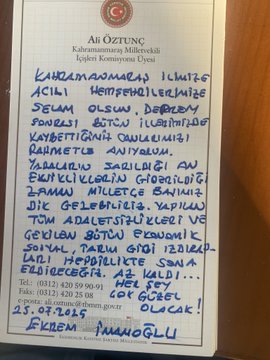 Ali ÖZTUNÇ
Kahramanmaraş Milletvekili
İçişleri Komisyonu Üyesi
KAHRAMANMARAŞ İLİMİZE
ACILI HEMŞEHRİLERİMİZE
SELAM OLSUN. DEPREM
SONRASI BÜTÜN İLLERİMİZDE
KAYBETTİĞİNİZ CANLARIMIZI
RAHMETLE ANIYORUM.
YARALARIN SARILDIĞI AN
EKSİKLİKLERİN GİDERİLDİĞİ
ZAMAN MİLLETÇE
DİK GELEBİLİRİZ. YAPILAN
TÜM ADALETSİZLİKLERİ VE
ÇEKİLEN BÜTÜN EKONOMİK
SOSYAL, TARIM GİBİ IZDIRAP-
LARI HEPBİRLİKTE SONA
ERDİRECEĞİZ. AZ KALDI...
Tel.: (0312) 420 59 90-91 HER ŞEY
Faks: (0312) 420 25 08 ÇOK GÜZEL
e-posta: ali.oztunc@tbmm.gov.tr OLACAK!
25.07.2025
EKREM İMAMOĞLU